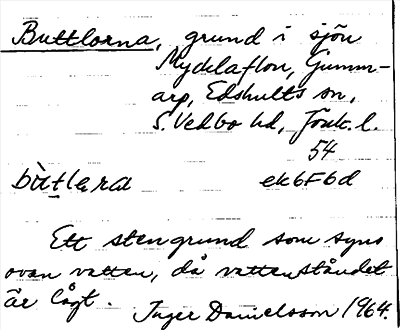 Buttlorna, grund i sjön
Mycklaflon, Gumm-
arp, Edshults sn,
S. Vedbo hd, Jönk. l.
54
bùtlera ek6F6d
Ett stengrund som syns
ovan vatten, då vattenståndet
är lågt.
Inger Danielsson 1964.